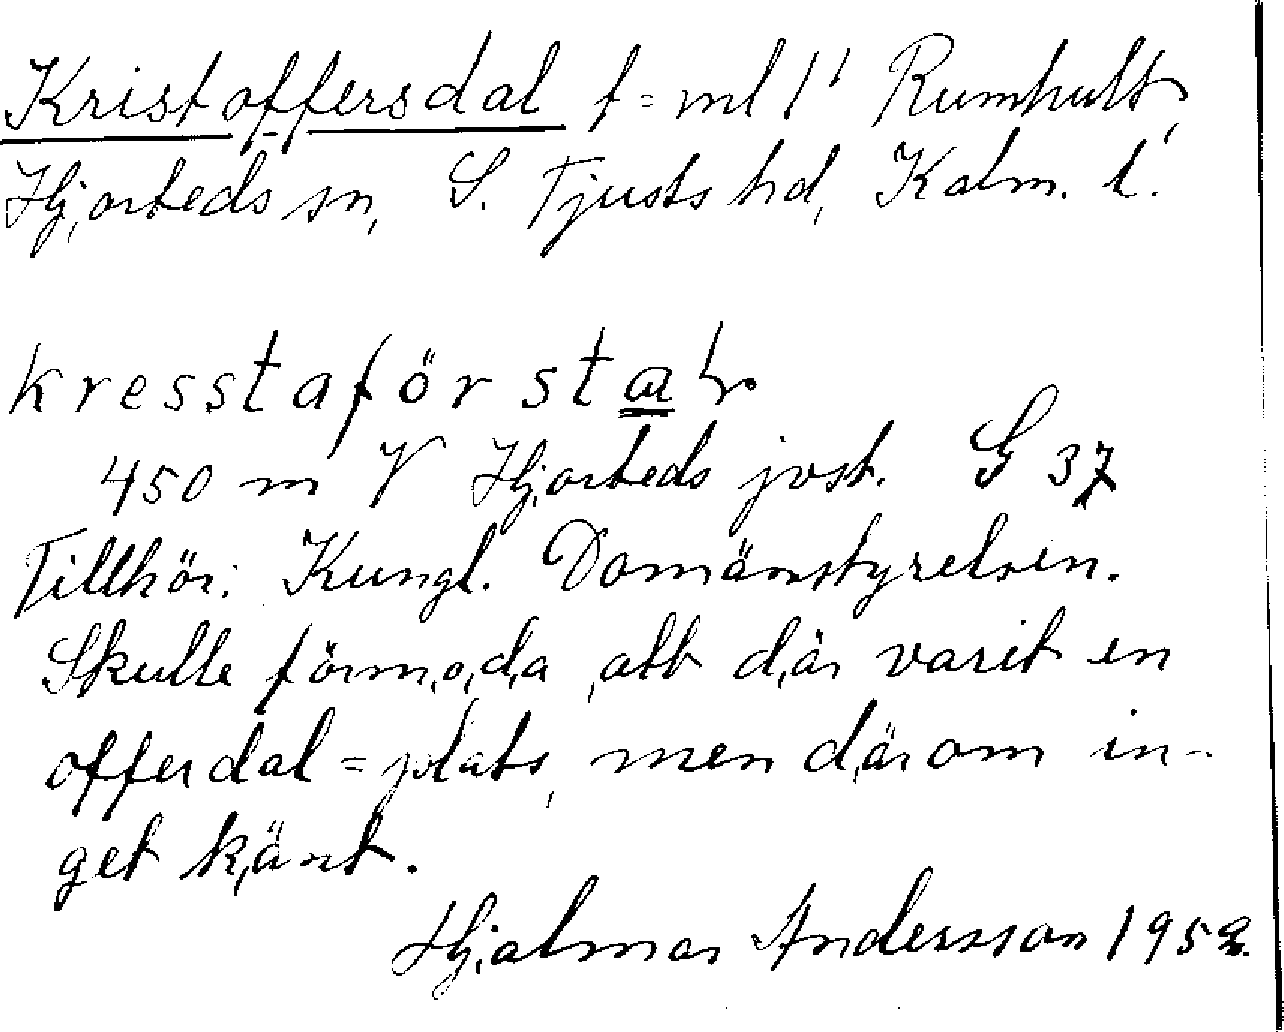 Kristoffersdal t = ml 1' Rumhult,
Hjorteds sn, S. Tjusts hd, Kalm. l.
kresstaförsta
450 m V Hjorteds jvst. G 37
Tillhör: Kungl. Domänstyrelsen.
Skulle förmoda, att där varit en
offerdal = plats, men därom in-
get känt.
Hjalmar Andersson